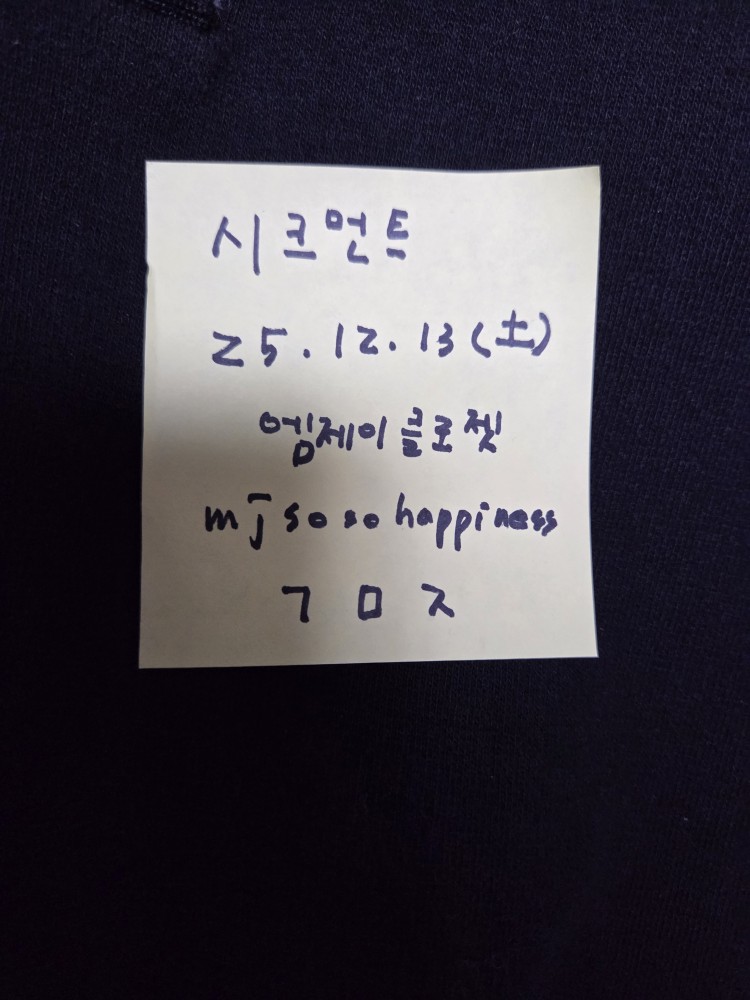 시크먼트
25.12.13(土)
엠제이클로젯
mjsosohappiness
ㄱㅁㅈ